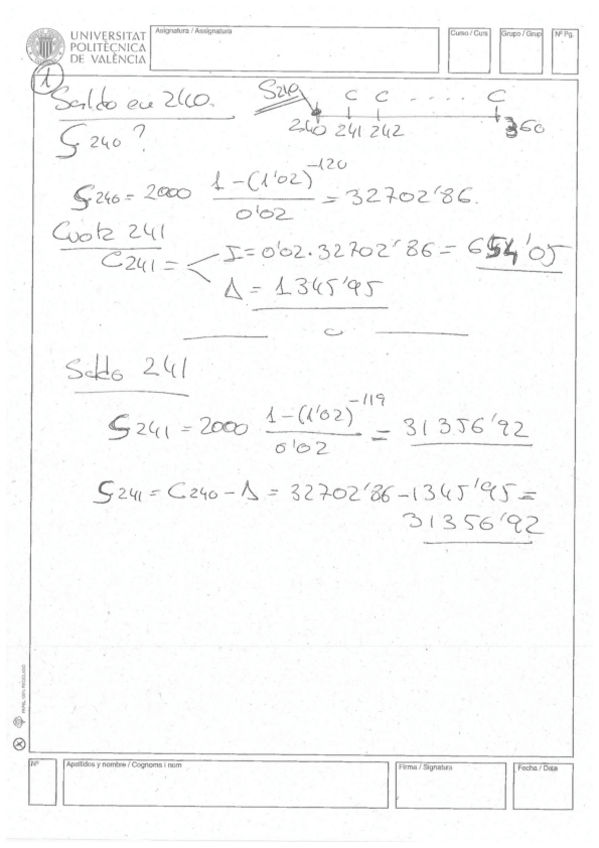 UNIVERSITAT
POLITÈCNICA
DE VALÈNCIA
Asignatura / Assignatura
Curso / Curs
Grupo / Grup
Nº Pg.
1
Saldo en 240.
S240
C C .... C
240 241 242 360
S 240 ?
S240 = 2000 1-(1'02)^-120 / 0'02 = 32702'86.
Cuota 241
C241 = I = 0'02.32702'86 = 654'05
A = 1345'95
Saldo 241
S241 = 2000 1-(1'02)^-119 / 0'02 = 31356'92
S241 = C240 - A = 32702'86-1345'95 =
31356'92
Nº
Apellidos y nombre / Cognoms i nom
Firma / Signatura
Fecha / Data